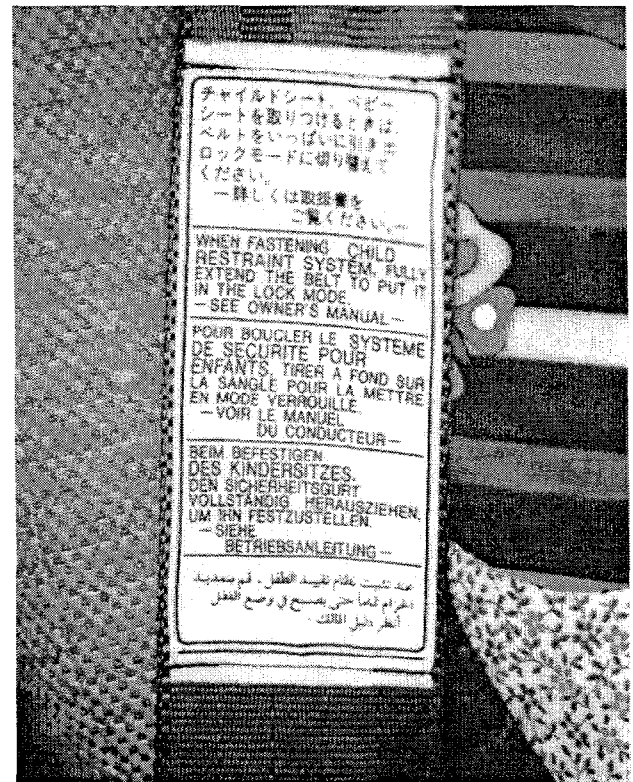 チャイルドシート、ベビー
シートを取りつけるときは、
ベルトをいっぱいに引き出
ロックモードに切り替えて
ください。
―詳しくは取扱書を
ご覧ください。―
WHEN FASTENING CHILD
RESTRAINT SYSTEM, FULLY
EXTEND THE BELT TO PUT IT
IN THE LOCK MODE.
—SEE OWNER'S MANUAL—
POUR BOUCLER LE SYSTEME
DE SECURITE POUR
ENFANTS, TIRER A FOND SUR
LA SANGLE POUR LA METTRE
EN MODE VERROUILLE.
—VOIR LE MANUEL
DU CONDUCTEUR—
BEIM BEFESTIGEN
DES KINDERSITZES,
DEN SICHERHEITSGURT
VOLLSTÄNDIG HERAUSZIEHEN,
UM IHN FESTZUSTELLEN.
—SIEHE
BETRIEBSANLEITUNG—
عند تثبيت نظام تقييد الطفل، قم بتمديد
حزام تماماً حتى يصبح في وضع القفل
أنظر دليل المالك